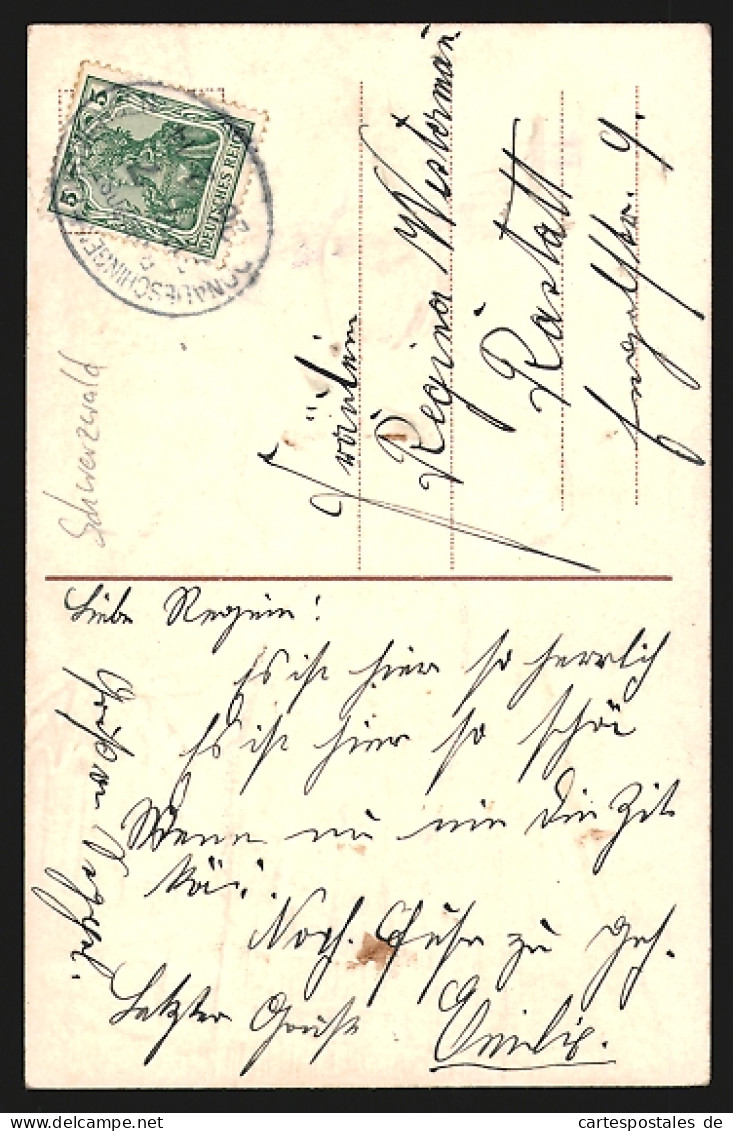 5
5
DEUTSCHES REICH
DONAUESCHINGEN
Schwarzwald
Fräulein
Regina Westerman
Rastatt
Engelstr. 9
Liebe Regein!
Es ist hier so herrlich
Es ist hier so schön
Wenn nu nie die Zit
kä..
Noch Huse zu geh.
Letzter Gruß
Emilie.
cartespostales de